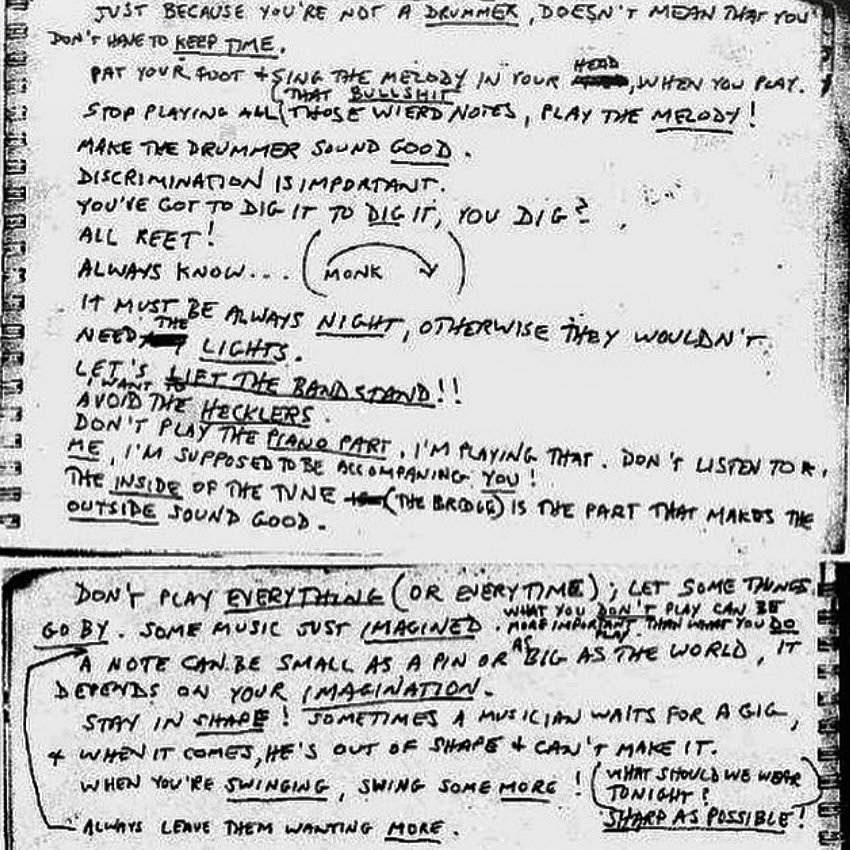 JUST BECAUSE YOU'RE NOT A DRUMMER, DOESN'T MEAN THAT YOU
DON'T HAVE TO KEEP TIME.
PAT YOUR FOOT + SING THE MELODY IN YOUR HEAD, WHEN YOU PLAY.
STOP PLAYING ALL (THAT BULLSHIT
THOSE WIERD NOTES, PLAY THE MELODY!
MAKE THE DRUMMER SOUND GOOD.
DISCRIMINATION IS IMPORTANT.
YOU'VE GOT TO DIG IT TO DIG IT, YOU DIG?
ALL REET!
ALWAYS KNOW... (MONK)
IT MUST BE ALWAYS NIGHT, OTHERWISE THEY WOULDN'T
NEED THE LIGHTS.
LET'S LIFT THE BAND STAND!!
I WANT TO
AVOID THE HECKLERS.
DON'T PLAY THE PIANO PART, I'M PLAYING THAT. DON'T LISTEN TO
ME, I'M SUPPOSED TO BE ACCOMPANING YOU!
THE INSIDE OF THE TUNE (THE BRIDGE) IS THE PART THAT MAKES THE
OUTSIDE SOUND GOOD.
DON'T PLAY EVERYTHING (OR EVERYTIME); LET SOME THINGS
GO BY. SOME MUSIC JUST IMAGINED.
WHAT YOU DON'T PLAY CAN BE
MORE IMPORTANT THAN WHAT YOU DO
PLAY.
A NOTE CAN BE SMALL AS A PIN OR AS BIG AS THE WORLD, IT
DEPENDS ON YOUR IMAGINATION.
STAY IN SHAPE! SOMETIMES A MUSICIAN WAITS FOR A GIG,
+ WHEN IT COMES, HE'S OUT OF SHAPE + CAN'T MAKE IT.
WHEN YOU'RE SWINGING, SWING SOME MORE!
(WHAT SHOULD WE WEAR
TONIGHT?
SHARP AS POSSIBLE!)
ALWAYS LEAVE THEM WANTING MORE.